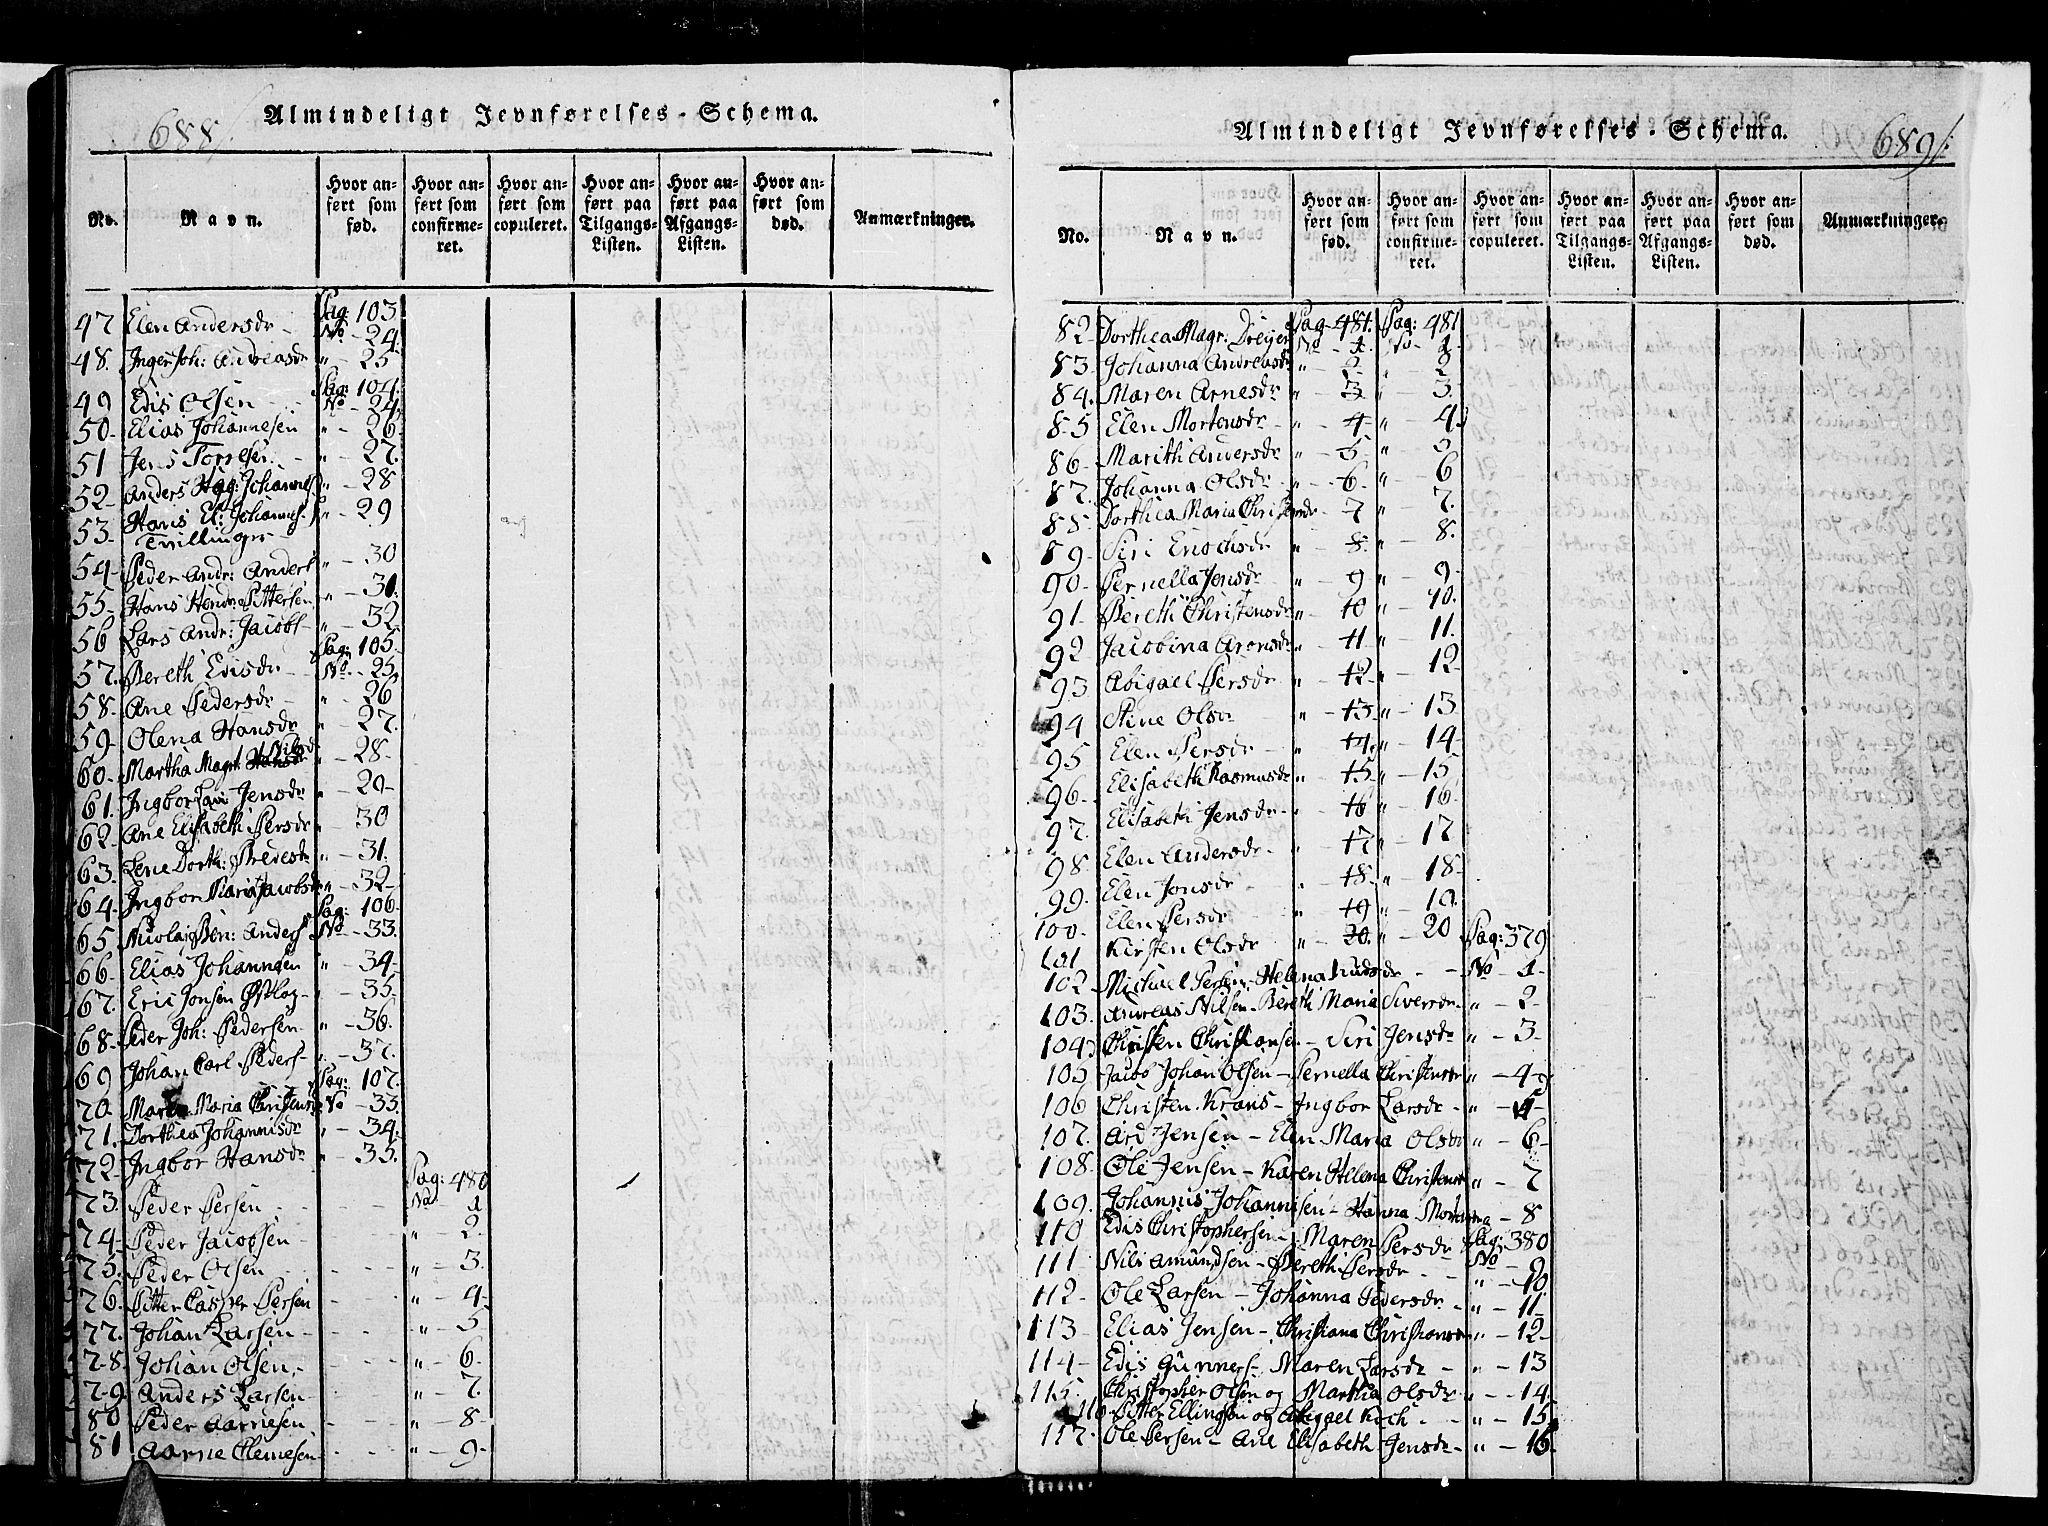 688/
Almindeligt Jevnførelses-Schema.
No.
Navn.
Hvor anført som fød.
Hvor anført som confirmeret.
Hvor anført som copuleret.
Hvor anført paa Tilgangs-Listen.
Hvor anført paa Afgangs-Listen.
Hvor anført som død.
Anmærkninger.
Pag 103
47 Elen Andersdr - No - 24
48. Inger Joh: Andreasdr " - 25
Pag: 104
49 Edis Olsen - No - 24
50- Elias Johannesen " - 26
51 Jens Torresen - " - 27.
52- Anders Hag: Johannes " - 28
53. Hans El: Johannes " - 29
Tvillinger
54- Peder Andr: Anders " - 30
55- Hans Henr: Pittersen " - 31.
56 Lars Andr: Jacobs - " - 32
Pag: 105.
57. Bereth Edisdr - No. - 25
58. Ane Pedersdr - " - 26
59- Olena Hansdr " - 27.
60- Martha Magr. Nilsdr " - 28-
61. Ingbor Jensdr " - 29-
62- Ane Elisabeth Persdr " - 30
63. Lene Dorth: Predesdr " - 31.
64- Ingbor Maria Jacobsdr " - 32-
Pag: 106-
65- Nicolai Ben: Anders No - 33.
66- Elias Johannsen " - 34-
67. Eric Jonsen Østlog - " - 35
68- Peder Joh: Pedersen - " - 36.
69 Johan Carl Peders - " - 37.
Pag: 107.
70- Maren Maria Christensdr No - 33.
71. Dorthea Johannisdr " - 34-
72- Ingbor Hansdr " - 35.
Pag: 480
73. Peder Persen - No 1
74- Peder Jacobsen - " - 2.
75. Peder Olsen " - 3.
76. Pitter Casper Persen " - 4
77. Johan Larsen - " - 5
78. Johan Olsen - " - 6.
79. Anders Larsen - " - 7.
80 Peder Aarnesen " - 8-
81 Aarne Clemesen - " - 9-
Almindeligt Jevnførelses-Schema.
689/:
No.
Navn.
Hvor anført som fød.
Hvor anført som confirmeret.
Hvor anført som copuleret.
Hvor anført paa Tilgangs-Listen.
Hvor anført paa Afgangs-Listen.
Hvor anført som død.
Anmærkninger.
Pag 481. Pag: 481
82- Dorthea Magr: Dreijer No - 1 No - 1
83. Johanna Andreasdr " - 2 " 2
84. Maren Arnesdr " - 3 " - 3.
85 Elen Mortensdr - " - 4 " - 4
86- Marith Andersdr " - 5 " - 5
87. Johanna Olsdr - " - 6 " - 6
88. Dorthea Maria Christensdr - 7 " - 7.
89- Siri Enochsdr " - 8 " - 8.
90- Pernella Jonsdr " - 9 " - 9-
91- Bereth Christensdr " - 10 " - 10.
92 Jacobina Aronsdr " - 11 " - 11.
93 Abigael Persdr " - 12 " - 12
94 Stine Olsdr " - 13 " - 13
95 Elen Persdr - " - 14 " - 14-
96- Elisabeth Rasmusdr " - 15 " - 15
97. Elisabeth Jensdr - " - 16 " - 16.
98. Elen Andersdr - " - 17 " - 17
99. Elen Jonsdr - " - 18 " - 18.
100- Elen Persdr " - 19 " - 19.
101 Kirsten Olsdr " - 20. " - 20 Pag: 379
102- Michael Persen - Helena Knudsdr - - No - 1-
103. Andreas Nilsen - Bereth Maria Siversdr " - 2-
104 Christen Christiansen - Siri Jensdr " - 3-
105 Jacob Johan Olsen - Pernella Christensdr " - 4-
106 Christen Krans - Ingbor Larsdr - "
107. Ard Jensen - Elen Maria Olsdr " - 6-
108. Ole Jensen - Karen Helena Christensdr " - 7
109. Johannis Johannisen - Hanna - 8
110 Edis Christophersen - Maren Persdr Pag: 380
111. Nils Amundsen - Bereth Persdr - No - 9
" - 10
112- Ole Larsen - Johanna Pedersdr - " - 11
113- Elias Jensen - Christiana Christiansdr " - 12-
114- Edis Gunners - Maren Larsdr - " - 13
115. Christopher Olsen og Martha Olsdr " - 14.
116 Pitter Ellingsen og Abigael Koch - " - 15
117. Ole Persen - Ane Elisabeth Jensdr - " - 16